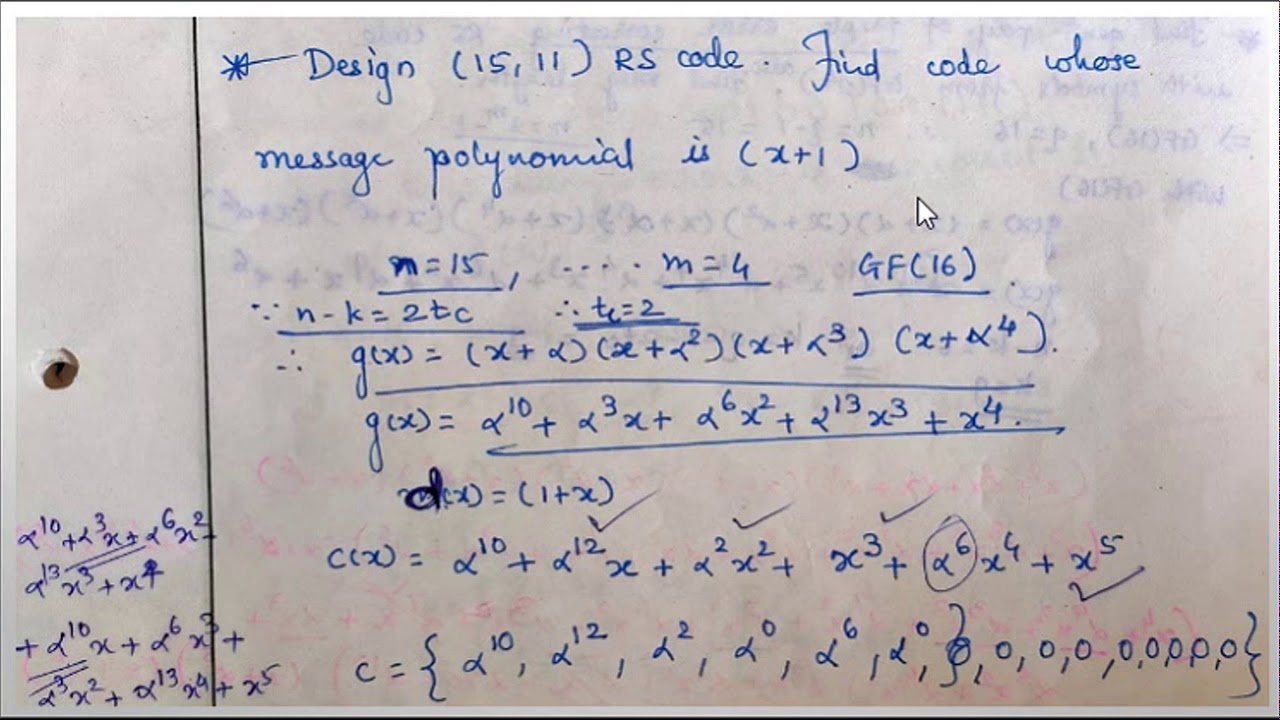 * Design (15, 11) RS code. Find code whose
message polynomial is (x+1)
n = 15, ..... m = 4 GF(16)
∵ n - k = 2tc ∴ tc = 2
∴ g(x) = (x + α)(x + α²)(x + α³) (x + α⁴).
g(x) = α¹⁰ + α³x + α⁶x² + α¹³x³ + x⁴.
d(x) = (1+x)
c(x) = α¹⁰ + α¹²x + α²x² + x³ + α⁶x⁴ + x⁵
c = { α¹⁰, α¹², α², α⁰, α⁶, α⁰, 0, 0, 0, 0, 0, 0, 0, 0, 0}
α¹⁰ + α³x + α⁶x² +
α¹³x³ + x⁴
+ α¹⁰x + α⁶x³ +
α³x² + α¹³x⁴ + x⁵